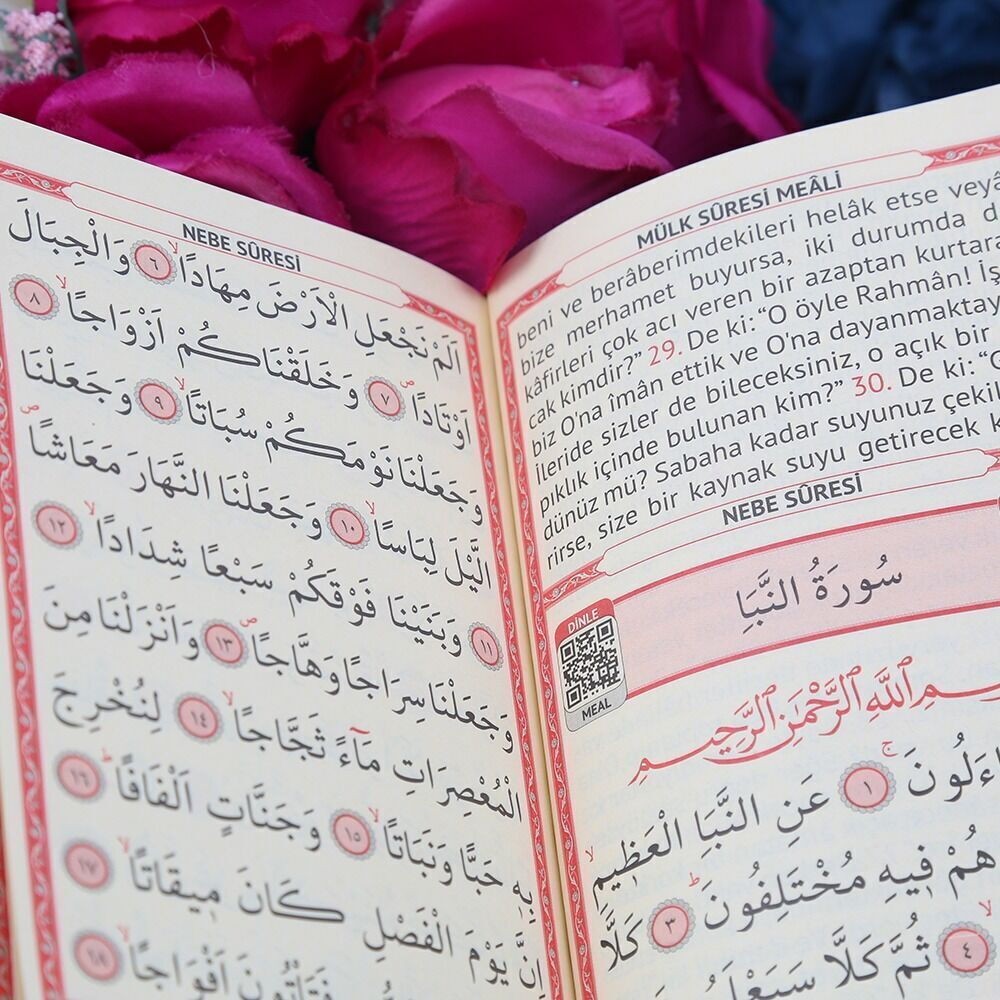 MÜLK SÛRESİ MEÂLİ
beni ve berâberimdekileri helâk etse veyâ
bize merhamet buyursa, iki durumda d
kâfirleri çok acı veren bir azaptan kurtara
cak kimdir?” 29. De ki:“O öyle Rahmân! İş
biz O'na îmân ettik ve O'na dayanmaktay
ileride sizler de bileceksiniz, o açık bir
pıklık içinde bulunan kim?” 30. De ki: “
dünüz mü? Sabaha kadar suyunuz çekil
rirse, size bir kaynak suyu getirecek k
NEBE SÛRESİ
سُورَةُ النَّبَاِ
DİNLE
MEAL
ـمِ اللّٰهِ الرَّحْمٰنِ الرَّحِيمِ
اءَلُونَ ۚ ١ عَنِ النَّبَاِ الْعَظِيمِ ۙ
هُمْ فِيهِ مُخْتَلِفُونَ ۜ ٣ كَلَّا
ۙ ٤ ثُمَّ كَلَّا سَيَعْلَمُ
NEBE SÛRESİ
اَلَمْ نَجْعَلِ الْاَرْضَ مِهَادًا ۙ ٦ وَالْجِبَالَ
اَوْتَادًا ۖ ٧ وَخَلَقْنَاكُمْ اَزْوَاجًا ۙ ٨
وَجَعَلْنَا نَوْمَكُمْ سُبَاتًا ۙ ٩ وَجَعَلْنَا
الَّيْلَ لِبَاسًا ۙ ١٠ وَجَعَلْنَا النَّهَارَ مَعَاشًا ۖ
١١ وَبَنَيْنَا فَوْقَكُمْ سَبْعًا شِدَادًا ۙ ١٢
وَجَعَلْنَا سِرَاجًا وَهَّاجًا ۖ ١٣ وَاَنْزَلْنَا مِنَ
الْمُعْصِرَاتِ مَٓاءً ثَجَّاجًا ۙ ١٤ لِنُخْرِجَ
بِهِ حَبًّا وَنَبَاتًا ۙ ١٥ وَجَنَّاتٍ اَلْفَافًا ۜ ١٦
اِنَّ يَوْمَ الْفَصْلِ كَانَ مِيقَاتًا ۙ ١٧
فَتَأْتُونَ اَفْوَاجًا ۙ ١٨